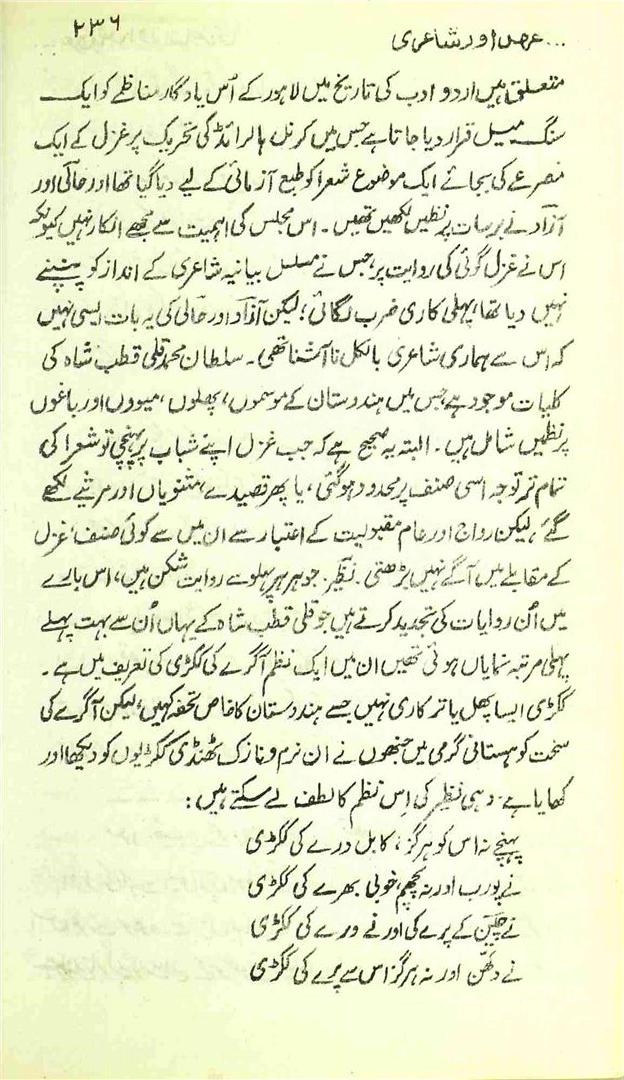 ۲۳۶
... عرض اور شاعری
متعلق ہیں اردو ادب کی تاریخ میں لاہور کے اُس یادگار مناظمے کو ایک
سنگ میل قرار دیا جاتا ہے جس میں کرنل ہالرائڈ کی تحریک پر غزل کے ایک
مصرعے کی بجائے ایک موضوع شعرا کو طبع آزمائی کے لیے دیا گیا تھا اور حالی اور
آزاد نے برسات پر نظمیں لکھیں تھیں۔ اس مجلس کی اہمیت سے مجھے انکار نہیں کیونکہ
اس نے غزل گوئی کی روایت پر، جس نے مسلسل بیانیہ شاعری کے انداز کو پنپنے
نہیں دیا تھا، پہلی کاری ضرب لگائی؛ لیکن آزاد اور حالی کی یہ بات ایسی نہیں
کہ اس سے ہماری شاعری بالکل نا آشنا تھی۔ سلطان محمد قلی قطب شاہ کی
کلیات موجود ہے جس میں ہندوستان کے موسموں، پھلوں، میووں اور باغوں
پر نظمیں شامل ہیں۔ البتہ یہ صحیح ہے کہ جب غزل اپنے شباب پر پہنچی تو شعرا کی
تمام تر توجہ اسی صنف پر محدود ہو گئی، یا پھر قصیدے، مثنویاں اور مرثیے لکھے
گئے، لیکن رواج اور عام مقبولیت کے اعتبار سے ان میں سے کوئی صنف غزل
کے مقابلے میں آگے نہیں بڑھتی۔ نظیر، جو ہر ہر پہلو سے روایت شکن ہیں، اس بارے
میں اُن روایات کی تجدید کرتے ہیں جو قلی قطب شاہ کے یہاں اُن سے بہت پہلے
پہلی مرتبہ نمایاں ہوئی تھیں ان میں ایک نظم آگرے کی ککڑی کی تعریف میں ہے۔
ککڑی ایسا پھل یا ترکاری نہیں جسے ہندوستان کا خاص تحفہ کہیں، لیکن آگرے کی
سخت کوہستانی گرمی میں جنھوں نے ان نرم و نازک ٹھنڈی ککڑیوں کو دیکھا اور
کھایا ہے۔ وہی نظیر کی اِس نظم کا لطف لے سکتے ہیں:
پہنچے نہ اس کو ہرگز، کابل درے کی ککڑی
نے پورب اور نہ پچھم، خوبی بھرے کی ککڑی
نے چین کے پرے کی اور نے ورے کی ککڑی
نے دکھن اور نہ ہرگز اس سے پرے کی ککڑی